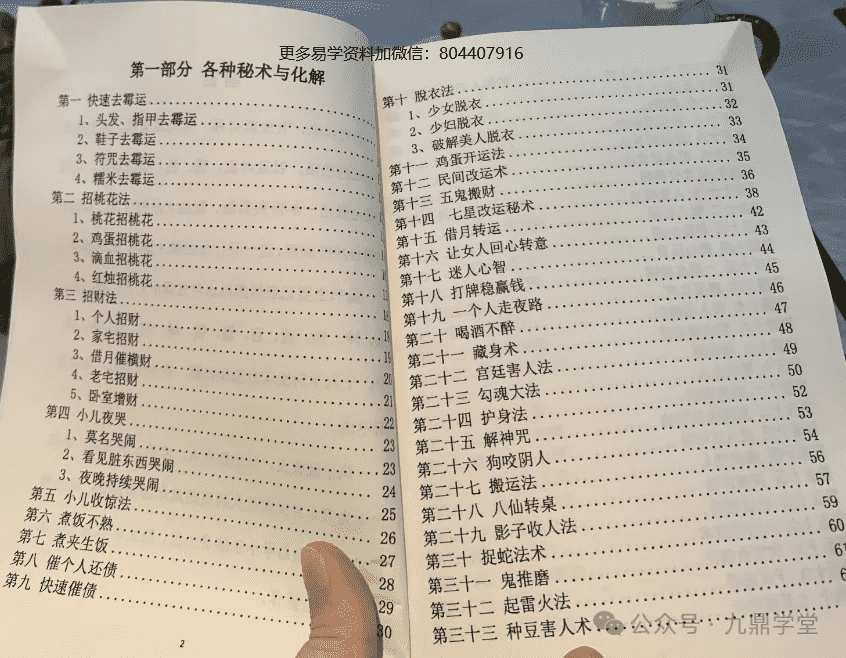 更多易学资料加微信：804407916
第一部分 各种秘术与化解
第一 快速去霉运
1、头发、指甲去霉运
2、鞋子去霉运
3、符咒去霉运
4、糯米去霉运
第二 招桃花法
1、桃花招桃花
2、鸡蛋招桃花
3、滴血招桃花
4、红烛招桃花
第三 招财法
1、个人招财
2、家宅招财 19
3、借月催横财 20
4、老宅招财 21
5、卧室增财 22
第四 小儿夜哭 23
1、莫名哭闹 23
2、看见脏东西哭闹 24
3、夜晚持续哭闹 25
第五 小儿收惊法 26
第六 煮饭不熟 27
第七 煮夹生饭 28
第八 催个人还债 29
第九 快速催债 30
2
第十 脱衣法 31
1、少女脱衣 31
2、少妇脱衣 32
3、破解美人脱衣 33
第十一 鸡蛋开运法 34
第十二 民间改运术 35
第十三 五鬼搬财 36
第十四 七星改运秘术 38
第十五 借月转运 42
第十六 让女人回心转意 43
第十七 迷人心智 44
第十八 打牌稳赢钱 45
第十九 一个人走夜路 46
第二十 喝酒不醉 47
第二十一 藏身术 48
第二十二 宫廷害人法 49
第二十三 勾魂大法 50
第二十四 护身法 52
第二十五 解神咒 53
第二十六 狗咬阴人 54
第二十七 搬运法 56
第二十八 八仙转桌 57
第二十九 影子收人法 59
第三十 捉蛇法术 60
第三十一 鬼推磨 61
第三十二 起雷火法
第三十三 种豆害人术
公众号·九鼎学堂